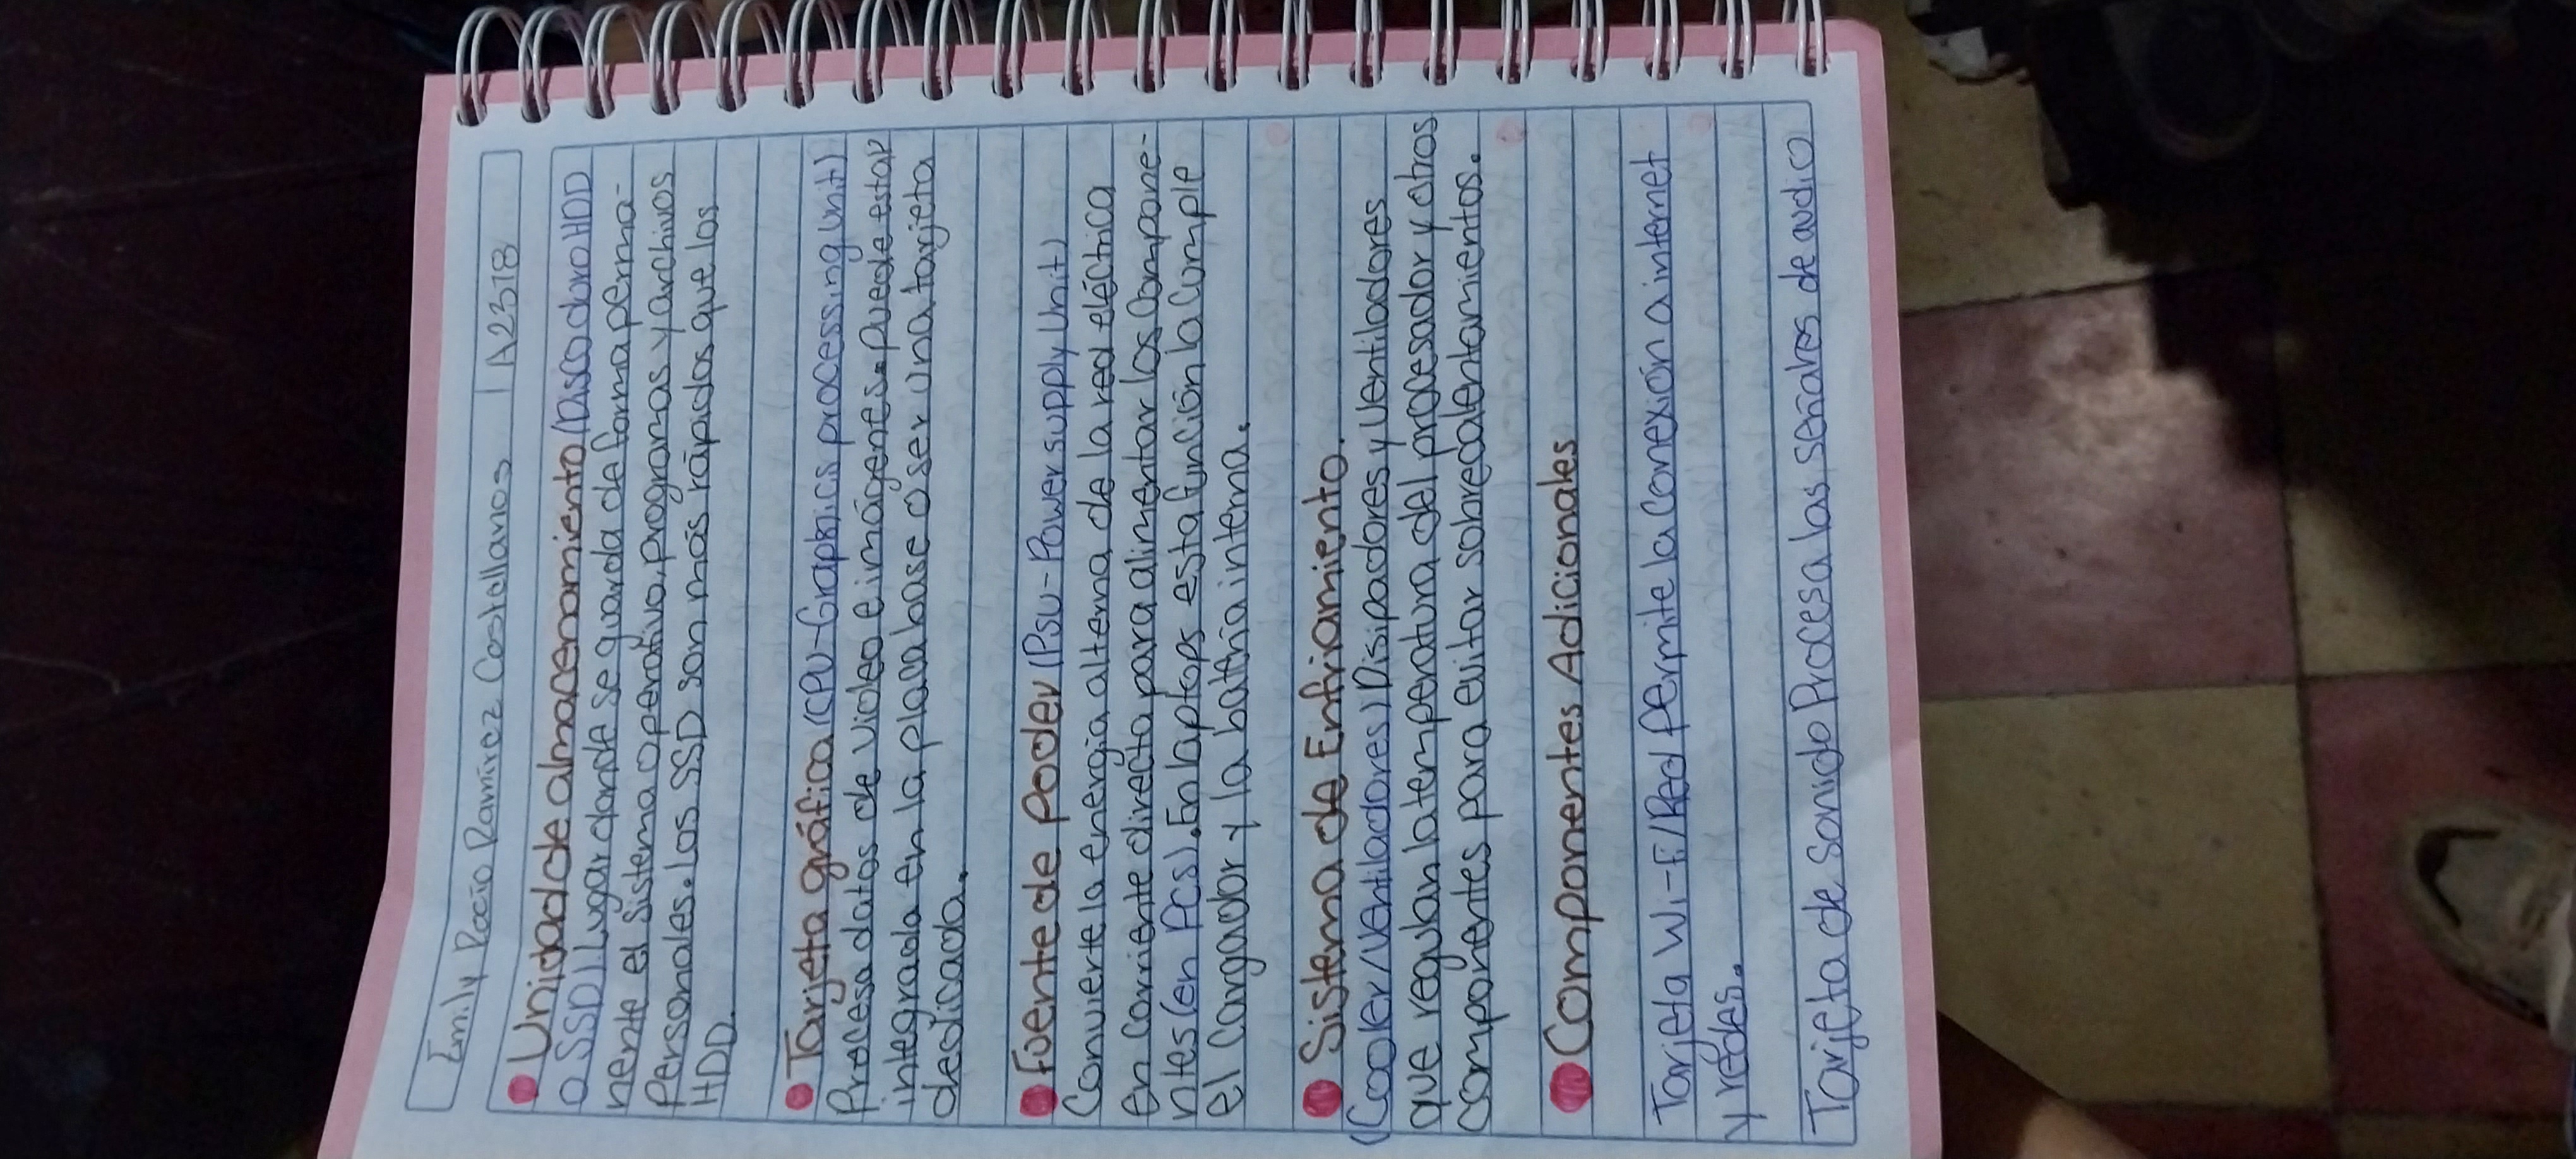 Emily Rocío Ramírez Castellanos | A2318
Unidad de almacenamiento (Disco duro HDD
o SSD) Lugar donde se guarda de forma perma-
nente el sistema operativo, programas y archivos
Personales. Los SSD son más rápidos que los
HDD.
Tarjeta gráfica (CPU-Graphics processing Unit)
Procesa datos de video e imágenes. puede estar
integrada en la placa base o ser una tarjeta
dedicada.
Fuente de poder (PSU-Power supply Unit)
Convierte la energía alterna de la red eléctrica
en corriente directa para alimentar los compone-
ntes (en PCs). En laptops esta función la cumple
el cargador y la batería interna.
Sistema de Enfriamiento.
(Cooler/Ventiladores) Disipadores y Ventiladores
que regulan la temperatura del procesador y otros
componentes para evitar sobredalentamientos.
Componentes Adicionales
Tarjeta Wi-Fi/Red permite la conexión a internet
y redes.
Tarjeta de sonido Procesa las señales de audio